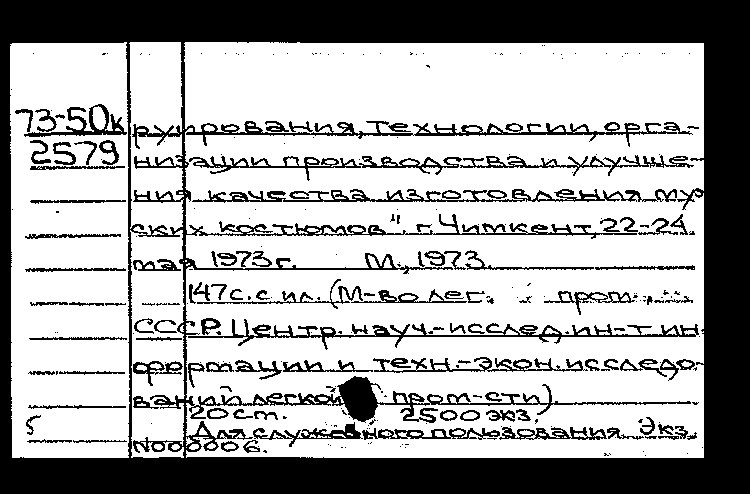 73-50к рупрования, технологии, орга-
2579 низации производства и улучше-
ния качества изготовления му
ских костюмов". г. Чимкент, 22-24
мая 1973 г. М., 1973.
147 с. с ил. (М-во лег. пром
СССР. Центр. науч.-исслед. ин-т ин
формации и техн.-экон. исследо-
ваний легкой пром-сти)
20 см. 2500 экз.
5 Для служебного пользования. Экз.
N000006.